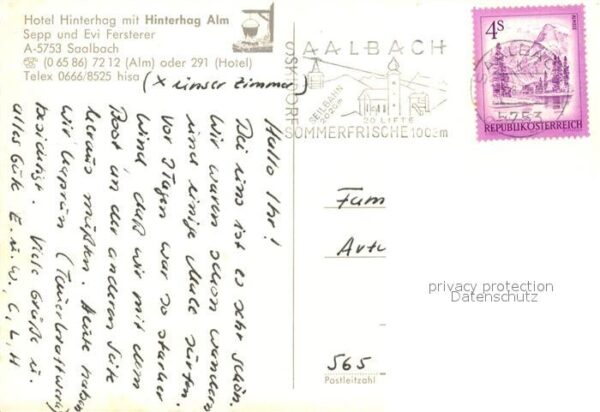 Hotel Hinterhag mit Hinterhag Alm
Sepp und Evi Fersterer
A-5753 Saalbach
☏ (0 65 86) 72 12 (Alm) oder 291 (Hotel)
Telex 0666/8525 hisa
(x unser Zimmer)
Hallo Ihr!
Bei uns ist es sehr schön.
Wir waren schon wandern
und einige Male surfen.
Vor Tagen war so starker
Wind, daß wir mit dem
Boot an der anderen Seite
heraus mußten. Heute haben
wir Kaprun (Tauernkraftwerk)
besichtigt. Viele Grüße u.
alles Gute E. u. W., C, L, H
SAALBACH
SKIDORF
SEILBAHN
2020m
20 LIFTE
SOMMERFRISCHE 1003m
4S
ALMSEE
REPUBLIK ÖSTERREICH
SAALBACH
5753
Fam
Artu
privacy protection
Datenschutz
565
Postleitzahl